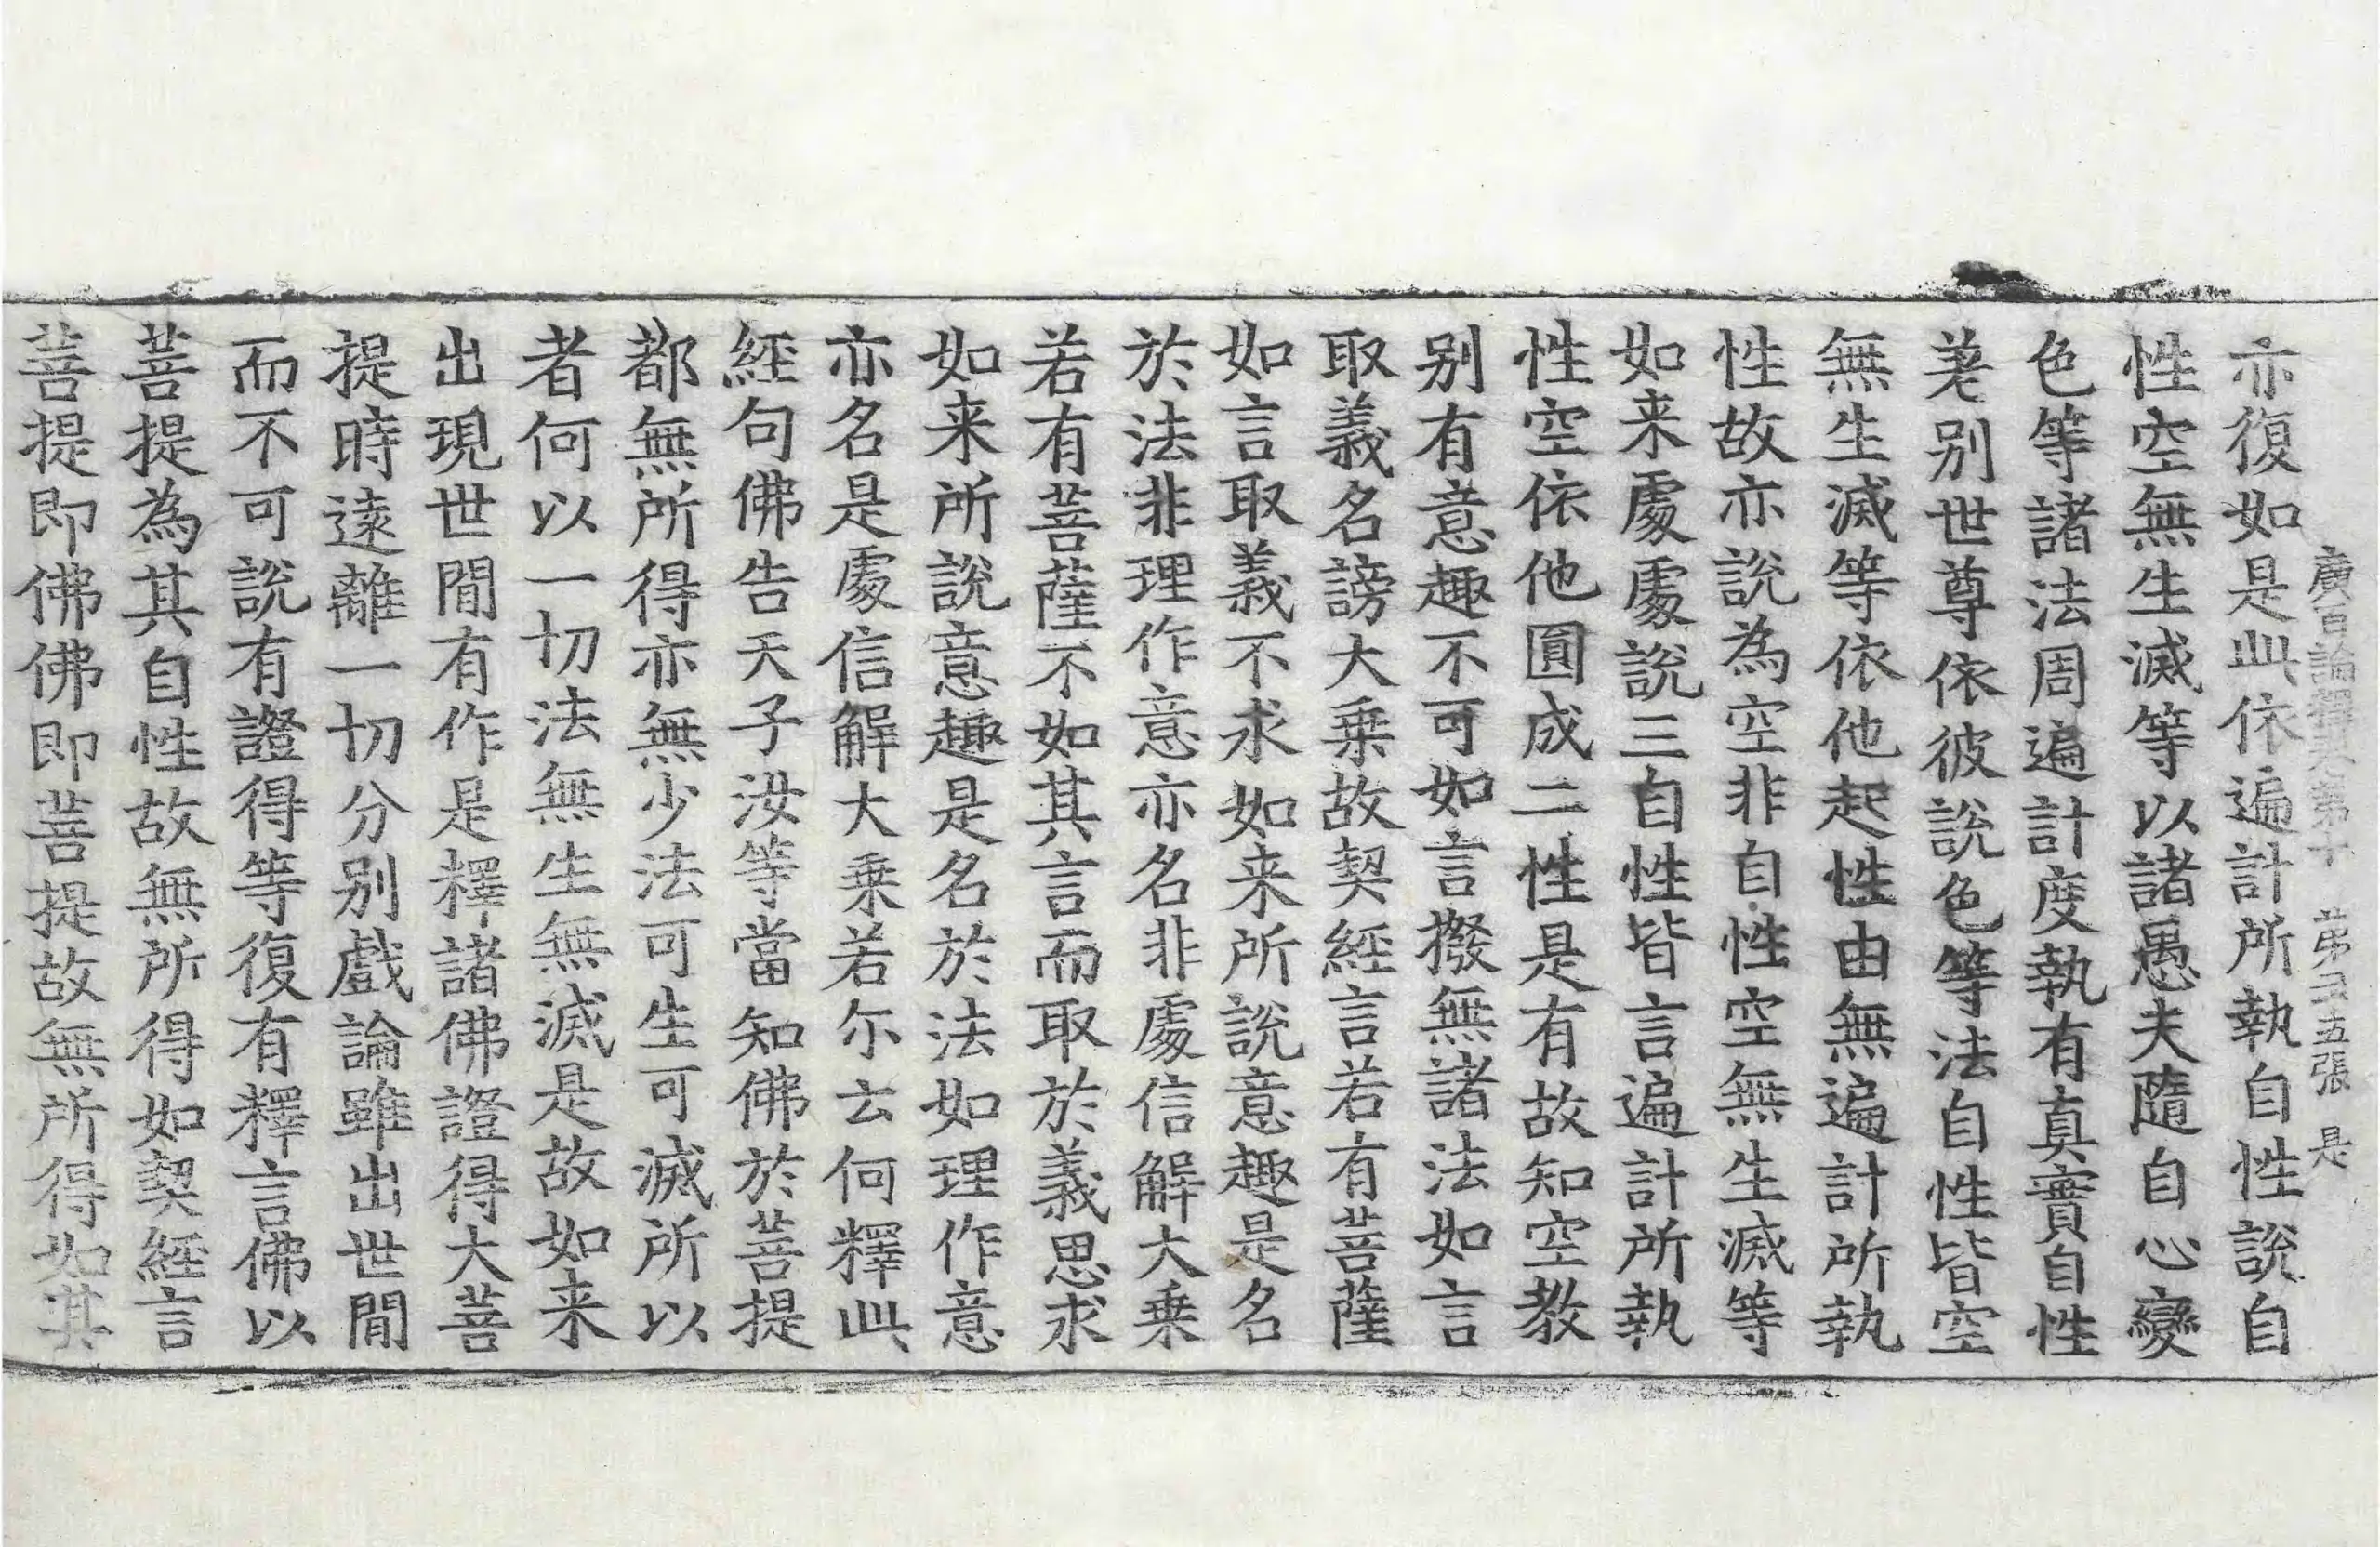 廣百論釋論第十　第二五張　是
亦復如是此依遍計所執自性說自
性空無生滅等以諸愚夫隨自心變
色等諸法周遍計度執有真實自性
差別世尊依彼說色等法自性皆空
無生滅等依他起性由無遍計所執
性故亦說為空非自性空無生滅等
如来處處說三自性皆言遍計所執
性空依他圓成二性是有故知空教
别有意趣不可如言撥無諸法如言
取義名謗大乗故契經言若有菩薩
如言取義不求如来所說意趣是名
於法非理作意亦名非處信解大乗
若有菩薩不如其言而取於義思求
如来所說意趣是名於法如理作意
亦名是處信解大乗若尒云何釋此
經句佛告天子汝等當知佛於菩提
都無所得亦無少法可生可滅所以
者何以一切法無生無滅是故如来
出現世間有作是釋諸佛證得大菩
提時遠離一切分别戲論雖出世間
而不可說有證得等復有釋言佛以
菩提為其自性故無所得如契經言
菩提即佛佛即菩提故無所得如其